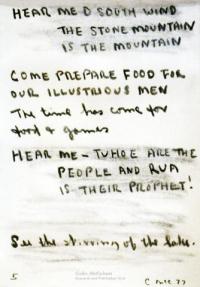 HEAR ME O SOUTH WIND
THE STONE MOUNTAIN
IS THE MOUNTAIN
COME PREPARE FOOD FOR
OUR ILLUSTRIOUS MEN
The time has come for
food & games
HEAR ME – TUHOE ARE THE
PEOPLE AND RUA
IS THEIR PROPHET!
See the stirring of the lake.
5
Colin McCahon